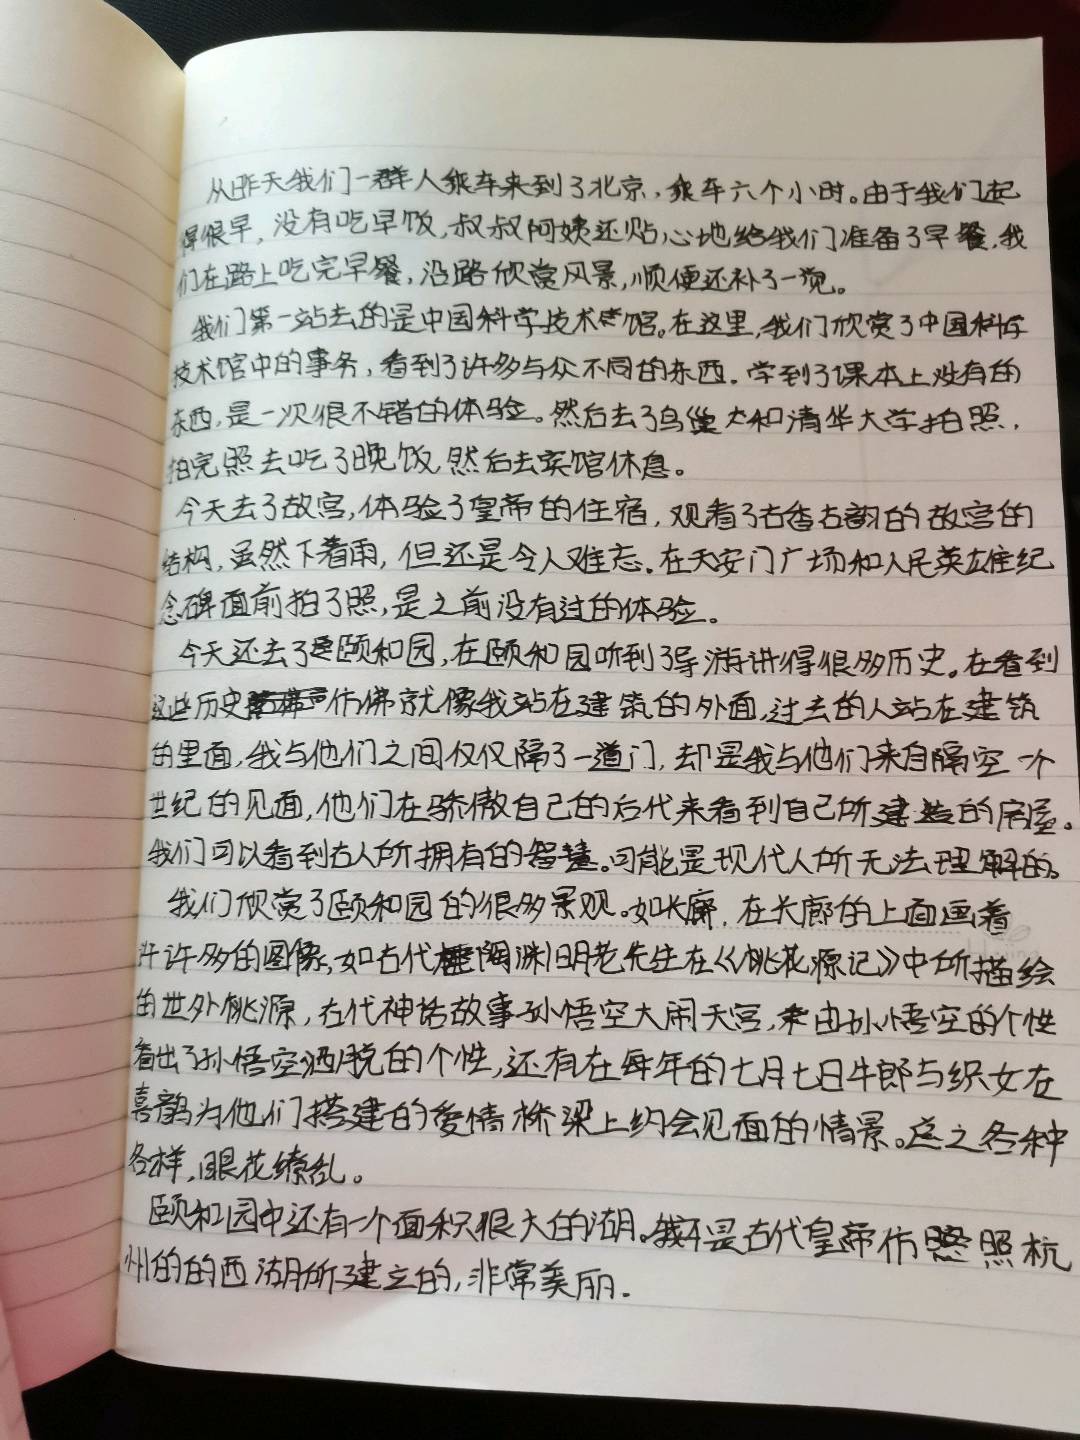 从昨天我们一群人乘车来到了北京,乘车六个小时。由于我们起
得很早,没有吃早饭,叔叔阿姨还贴心地给我们准备了早餐,我
们在路上吃完早餐,沿路欣赏风景,顺便还补了一觉。
我们第一站去的是中国科学技术馆。在这里,我们欣赏了中国科学
技术馆中的事务,看到了许多与众不同的东西。学到了课本上没有的
东西,是一次很不错的体验。然后去了鸟巢和清华大学拍照,
拍完照去吃了晚饭,然后去宾馆休息。
今天去了故宫,体验了皇帝的住宿,观看了古香古韵的故宫的
结构,虽然下着雨,但还是令人难忘。在天安门广场和人民英雄纪
念碑面前拍了照,是之前没有过的体验。
今天还去了颐和园,在颐和园听到了导游讲得很多历史。在看到
这些历史仿佛就像我站在建筑的外面,过去的人站在建筑
的里面,我与他们之间仅仅隔了一道门,却是我与他们来自隔空一个
世纪的见面,他们在骄傲自己的后代来看到自己所建造的房屋。
我们可以看到古人所拥有的智慧。可能是现代人所无法理解的。
我们欣赏了颐和园的很多景观。如长廊,在长廊的上面画着
许许多的图像,如古代陶渊明老先生在《桃花源记》中所描绘
的世外桃源,古代神话故事孙悟空大闹天宫,由孙悟空的个性
看出了孙悟空洒脱的个性,还有在每年的七月七日牛郎与织女在
喜鹊为他们搭建的爱情桥梁上约会见面的情景。总之各种
各样,眼花缭乱。
颐和园中还有一个面积很大的湖。是古代皇帝仿照杭
州的的西湖所建立的,非常美丽.